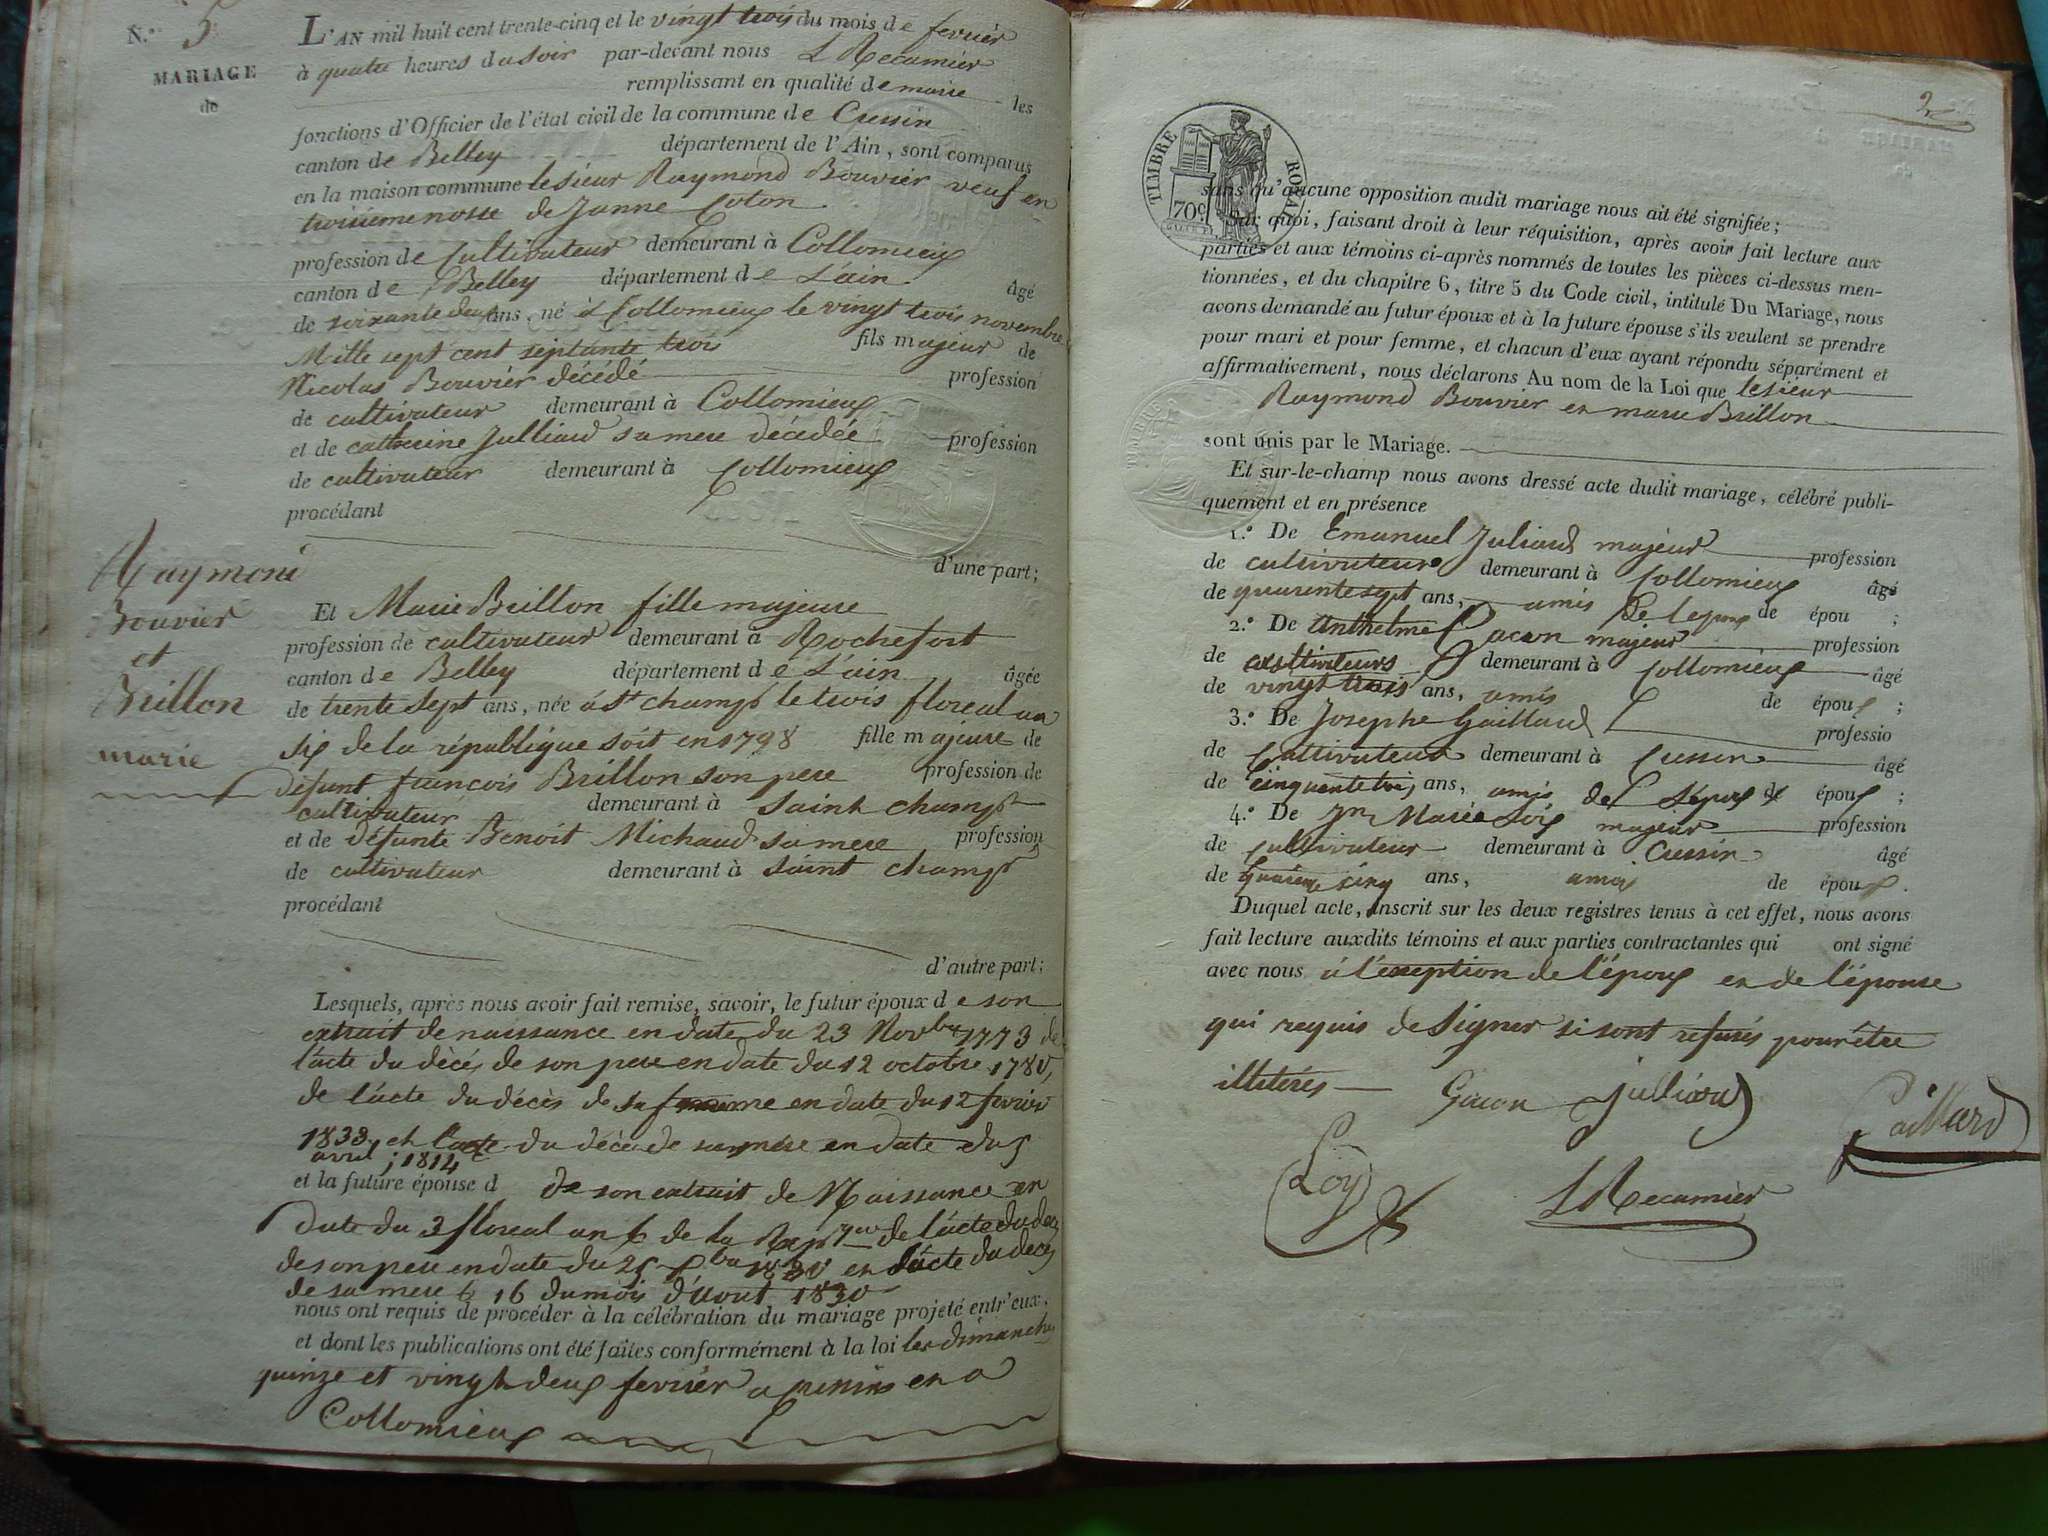 N.° 5
MARIAGE
de
Raymond
Bouvier
et
Brillon
marie
L'AN mil huit cent trente-cinq et le vingt trois du mois de fevrièr
à quatre heures du soir par-devant nous L Recamièr
remplissant en qualité de maire les
fonctions d'Officier de l'état civil de la commune de Cressin
canton de Belley département de l'Ain, sont comparus
en la maison commune le sieur Raymond Bouvièr veuf en
troisieme nosse de Janne Coton
profession de Cultivateur demeurant à Collomieux
canton de Belley département de L'ain âgé
de soixante deux ans, né à Collomieux le vingt trois novembre
Mille sept cent septante trois fils majeur de
Nicolas Bouvièr décédé profession
de cultivateur demeurant à Collomieux
et de catherine Julliard sa mere décedée profession
de cultivateur demeurant à Collomieux
procédant
d'une part;
Et Marie Brillon fille majeure
profession de cultivateur demeurant à Rochefort
canton de Belley département de L'ain âgée
de trente sept ans, née à St champt le trois floreal an
six de la république soit en 1798 fille majeure de
défunt francois Brillon son pere profession de
cultivateur demeurant à saint champt
et de défunte Benoit Michaud sa mere profession
de cultivateur demeurant à saint champt
procédant
d'autre part;
Lesquels, après nous avoir fait remise, savoir, le futur époux de son
extrait de naissance en date du 23 Novbre 1773 de
l'acte du décés de son pere en date du 12 octobre 1780,
de l'acte du décès de sa femme en date du 12 fevrièr
1833 et l'acte du décé de sa mere en date du 5
avril; 1814
et la future épouse d de son extrait de Naissance en
date du 3 floreal an 6 de la Repque de l'acte du déces
de son pere en date du 25 bre 1830 en l'acte du déces
de sa mere le 16 du mois d'Aout 1830
nous ont requis de procéder à la célébration du mariage projeté entr'eux,
et dont les publications ont été faites conformément à la loi les dimanches
quinze et vingt deux fevrièr a Cressin en a
Collomieux
2
TIMBRE ROYAL
70c
sans qu'aucune opposition audit mariage nous ait été signifiée;
Sur quoi, faisant droit à leur réquisition, après avoir fait lecture aux
parties et aux témoins ci-après nommés de toutes les pièces ci-dessus men-
tionnées, et du chapitre 6, titre 5 du Code civil, intitulé Du Mariage, nous
avons demandé au futur époux et à la future épouse s'ils veulent se prendre
pour mari et pour femme, et chacun d'eux ayant répondu séparément et
affirmativement, nous déclarons Au nom de la Loi que le sieur
Raymond Bouvièr en marie Brillon
sont unis par le Mariage.
Et sur-le-champ nous avons dressé acte dudit mariage, célébré publi-
quement et en présence
1.° De Emanuel Juliard majeur profession
de cultivateur demeurant à Collomieux âgé
de quarente sept ans, amis de lepoux de épou ;
2.° De Anthelme Gacon majeur profession
de cultivateurs demeurant à Collomieux âgé
de vingt trois ans, amis de époux ;
3.° De Josephe Gaillard professio
de Cultivateur demeurant à Cressin âgé
de cinquente trois ans, amis de L'époux de époux ;
4.° De Jn Marie Loix majeur profession
de cultivateur demeurant à Cressin âgé
de cinq ans, amis de époux.
Duquel acte, inscrit sur les deux registres tenus à cet effet, nous avons
fait lecture auxdits témoins et aux parties contractantes qui ont signé
avec nous à l'exeption de l'époux en de l'épouse
qui requis de Signer si sont refusés pour être
illitérés Gacon Julliard
Gaillard
Loÿ
L Recamièr